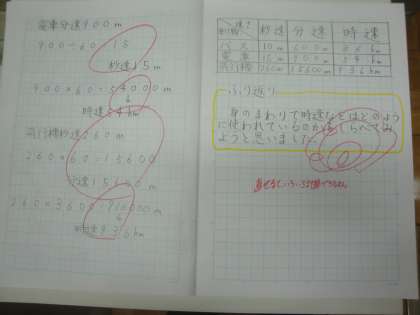 電車分速900m
900÷60=15
秒速15m
900×60=54000
時速54km
飛行機秒速260m
260×60=15600
分速15600m
260×3600=936000
時速936km
秒速 分速 時速
バス 10m 600m 36km
電車 15m 900m 54km
飛行機 260m 15600m 936km
ふり返り
身のまわりで時速などはどのよう
に使われているのかをしらべてみ
ようと思いました。